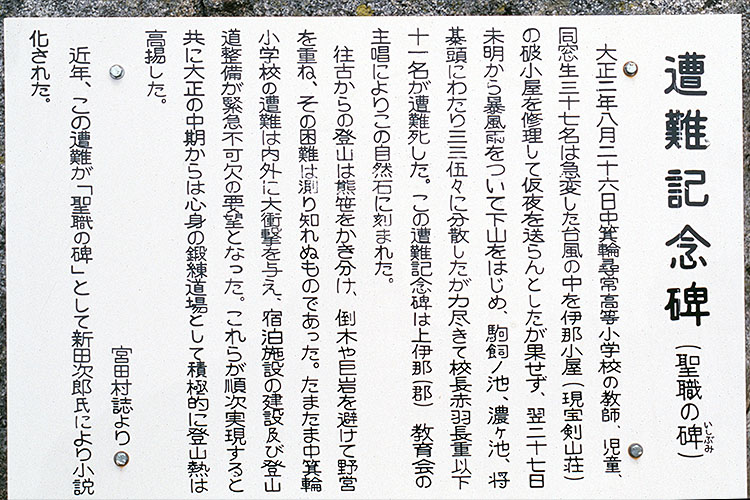 遭難記念碑(聖職の碑)
いしぶみ
大正二年八月二十六日中箕輪尋常高等小学校の教師、児童、
同窓生三十七名は急変した台風の中を伊那小屋(現宝剣山荘)
の破小屋を修理して仮夜を送らんとしたが果せず、翌二十七日
未明から暴風雨をついて下山をはじめ、駒飼ノ池、濃ヶ池、将
棊頭にわたり三三伍々に分散したが力尽きて校長赤羽長重以下
十一名が遭難死した。この遭難記念碑は上伊那(郡)教育会の
主唱によりこの自然石に刻まれた。
往古からの登山は熊笹をかき分け、倒木や巨岩を避けて野営
を重ね、その困難は測り知れぬものであった。たまたま中箕輪
小学校の遭難は内外に大衝撃を与え、宿泊施設の建設及び登山
道整備が緊急不可欠の要望となった。これらが順次実現すると
共に大正の中期からは心身の鍛練道場として積極的に登山熱は
高揚した。
宮田村誌より
近年、この遭難が「聖職の碑」として新田次郎氏により小説
化された。